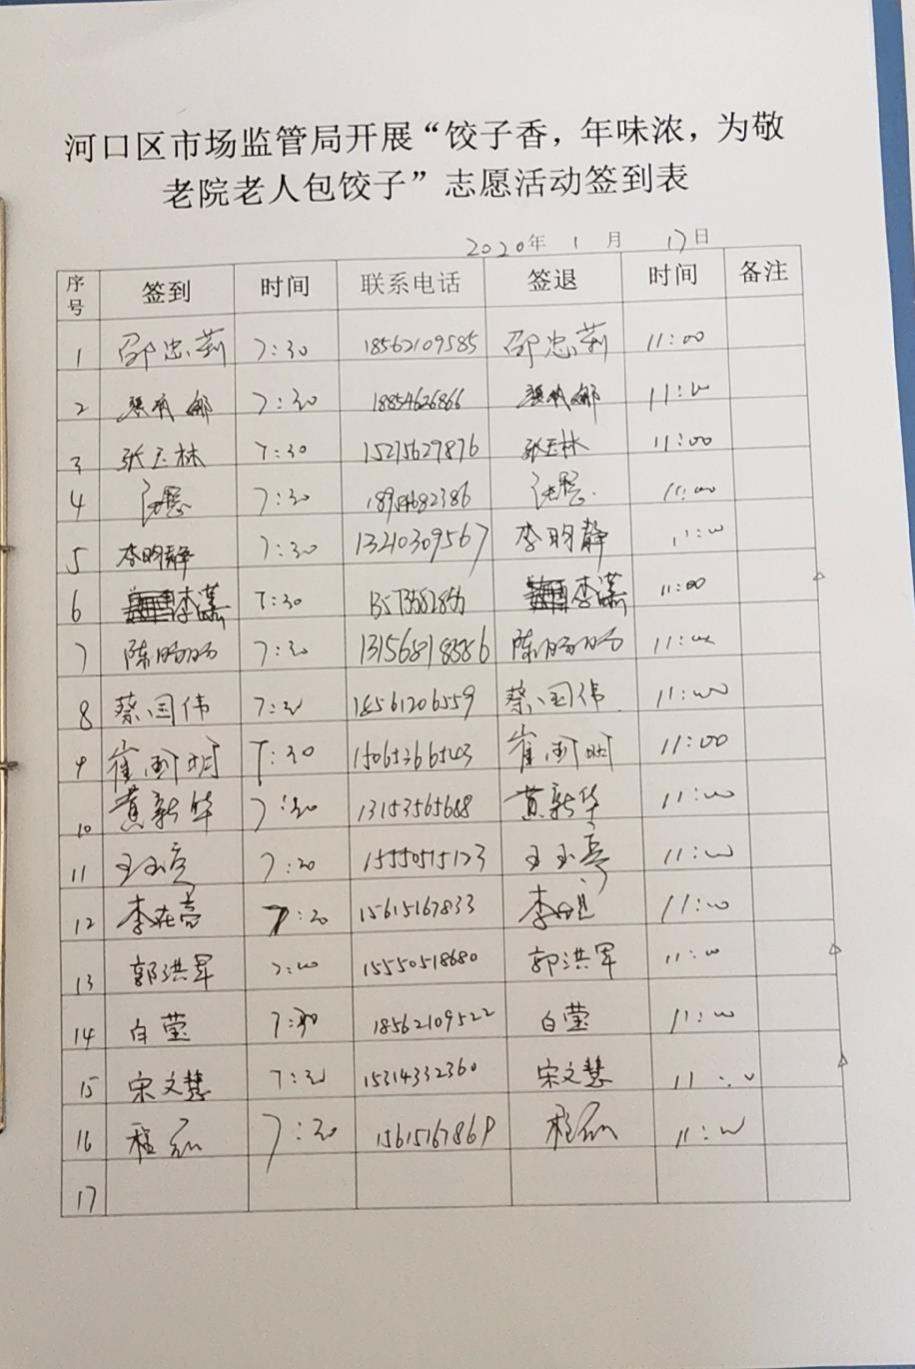 河口区市场监管局开展“饺子香，年味浓，为敬
老院老人包饺子”志愿活动签到表
2020年 1 月 17日
序号 签到 时间 联系电话 签退 时间 备注
1 邵忠莉 7:30 18562109585 邵忠莉 11:00
2 7:30 18854626866 11:00
3 张玉林 7:30 15275629876 张玉林 11:00
4 7:30 11:00
5 李昀静 7:30 13210309567 李昀静 11:00
6 李潇 7:30 李潇 11:00
7 陈旸旸 7:30 13156818586 陈旸旸 11:00
8 蔡国伟 7:30 18561206559 蔡国伟 11:00
9 崔 7:30 崔 11:00
10 黄新华 7:30 13153565688 黄新华 11:00
11 王玉亮 7:30 15550515123 王玉亮 11:00
12 李在亮 7:30 15615167833 李 11:00
13 郭洪军 7:00 15550518680 郭洪军 11:00
14 白莹 7:30 18562109522 白莹 11:00
15 宋文慧 7:30 15314332360 宋文慧 11:00
16 程磊 7:30 15615167869 程磊 11:00
17